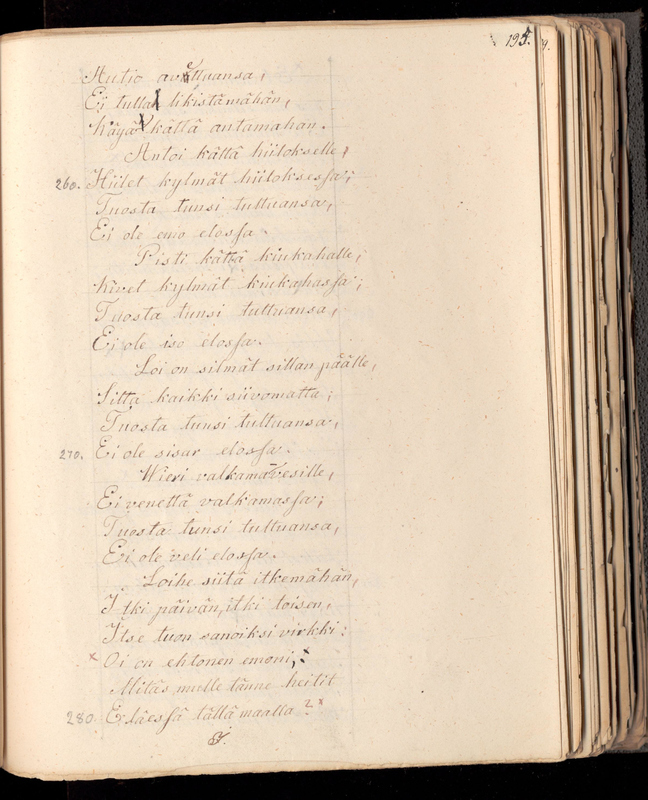 195.
Autio avattuansa,
Ei tulla likistämähän,
Käyä kättä antamahan.
Antoi kättä hiilokselle,
260. Hiilet kylmät hiiloksessa;
Tuosta tunsi tultuansa,
Ei ole emo elossa.
Pisti kättä kiukahalle,
Kivet kylmät kiukahassa;
Tuosta tunsi tultuansa,
Ei ole iso elossa.
Loi on silmät sillan päälle,
Silta kaikki siivomatta;
Tuosta tunsi tultuansa,
270. Ei ole sisar elossa.
Wieri valkamavesille,
Ei venettä valkamassa;
Tuosta tunsi tultuansa,
Ei ole veli elossa.
Loihe siitä itkemähän,
Itki päivän, itki toisen,
Itse tuon sanoiksi virkki:
Oi on ehtonen emoni,
Mitäs mulle tänne heitit
280. Eläessä tällä maalla?